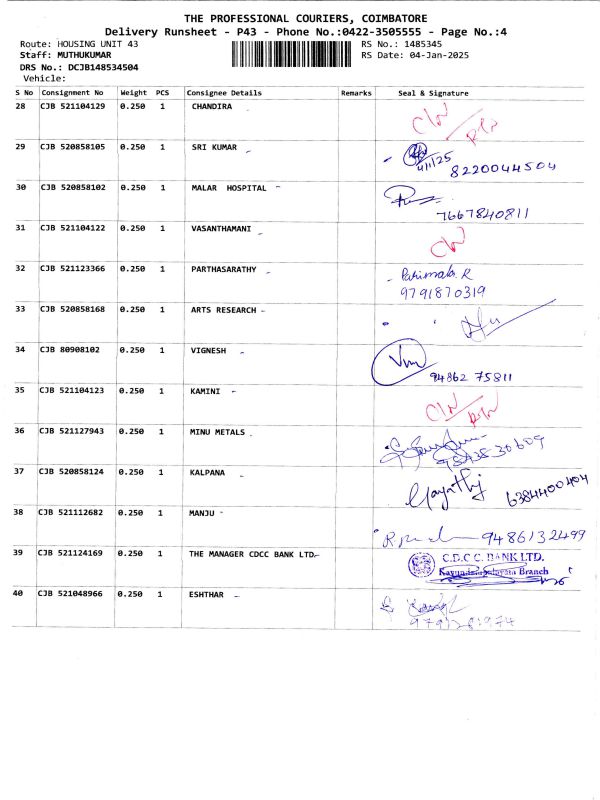 THE PROFESSIONAL COURIERS, COIMBATORE
Delivery Runsheet - P43 - Phone No.:0422-3505555 - Page No.:4
Route: HOUSING UNIT 43 RS No.: 1485345
Staff: MUTHUKUMAR RS Date: 04-Jan-2025
DRS No.: DCJB148534504
Vehicle:
S No Consignment No Weight PCS Consignee Details Remarks Seal & Signature
28 CJB 521104129 0.250 1 CHANDIRA
29 CJB 520858105 0.250 1 SRI KUMAR 4/1/25
8220044504
30 CJB 520858102 0.250 1 MALAR HOSPITAL
7667840811
31 CJB 521104122 0.250 1 VASANTHAMANI
32 CJB 521123366 0.250 1 PARTHASARATHY Parimala R
9791870319
33 CJB 520858168 0.250 1 ARTS RESEARCH
34 CJB 80908102 0.250 1 VIGNESH
94862 75811
35 CJB 521104123 0.250 1 KAMINI
36 CJB 521127943 0.250 1 MINU METALS
37 CJB 520858124 0.250 1 KALPANA Gayathj 6384400404
38 CJB 521112682 0.250 1 MANJU 9486132499
39 CJB 521124169 0.250 1 THE MANAGER CDCC BANK LTD. C.D.C C. BANK LTD.
Branch
40 CJB 521048966 0.250 1 ESHTHAR